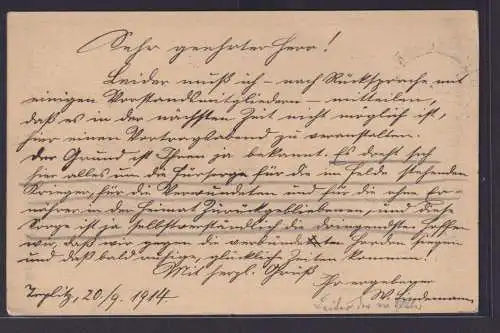 Sehr geehrter Herr!
Leider muß ich – nach Rücksprache mit
einigen Vorstandsmitgliedern – mitteilen,
daß es in der nächsten Zeit nicht möglich ist,
hier einen Vortragsabend zu veranstalten.
Der Grund ist Ihnen ja bekannt. Es dreht sich
hier alles um die Fürsorge für die im Felde stehenden
Krieger, für die Verwundeten und für die ohne Er-
nährer in der Heimat Zurückgebliebenen, und diese
Sorge ist ja selbstverständlich die dringendste. Hoffen
wir, daß wir gegen die verbündeten Horden siegen
und daß bald ruhige, glückliche Zeiten kommen!
Mit herzl. Gruß
Ihr ergebener
W. Lindemann
Steglitz, 20./9. 1914